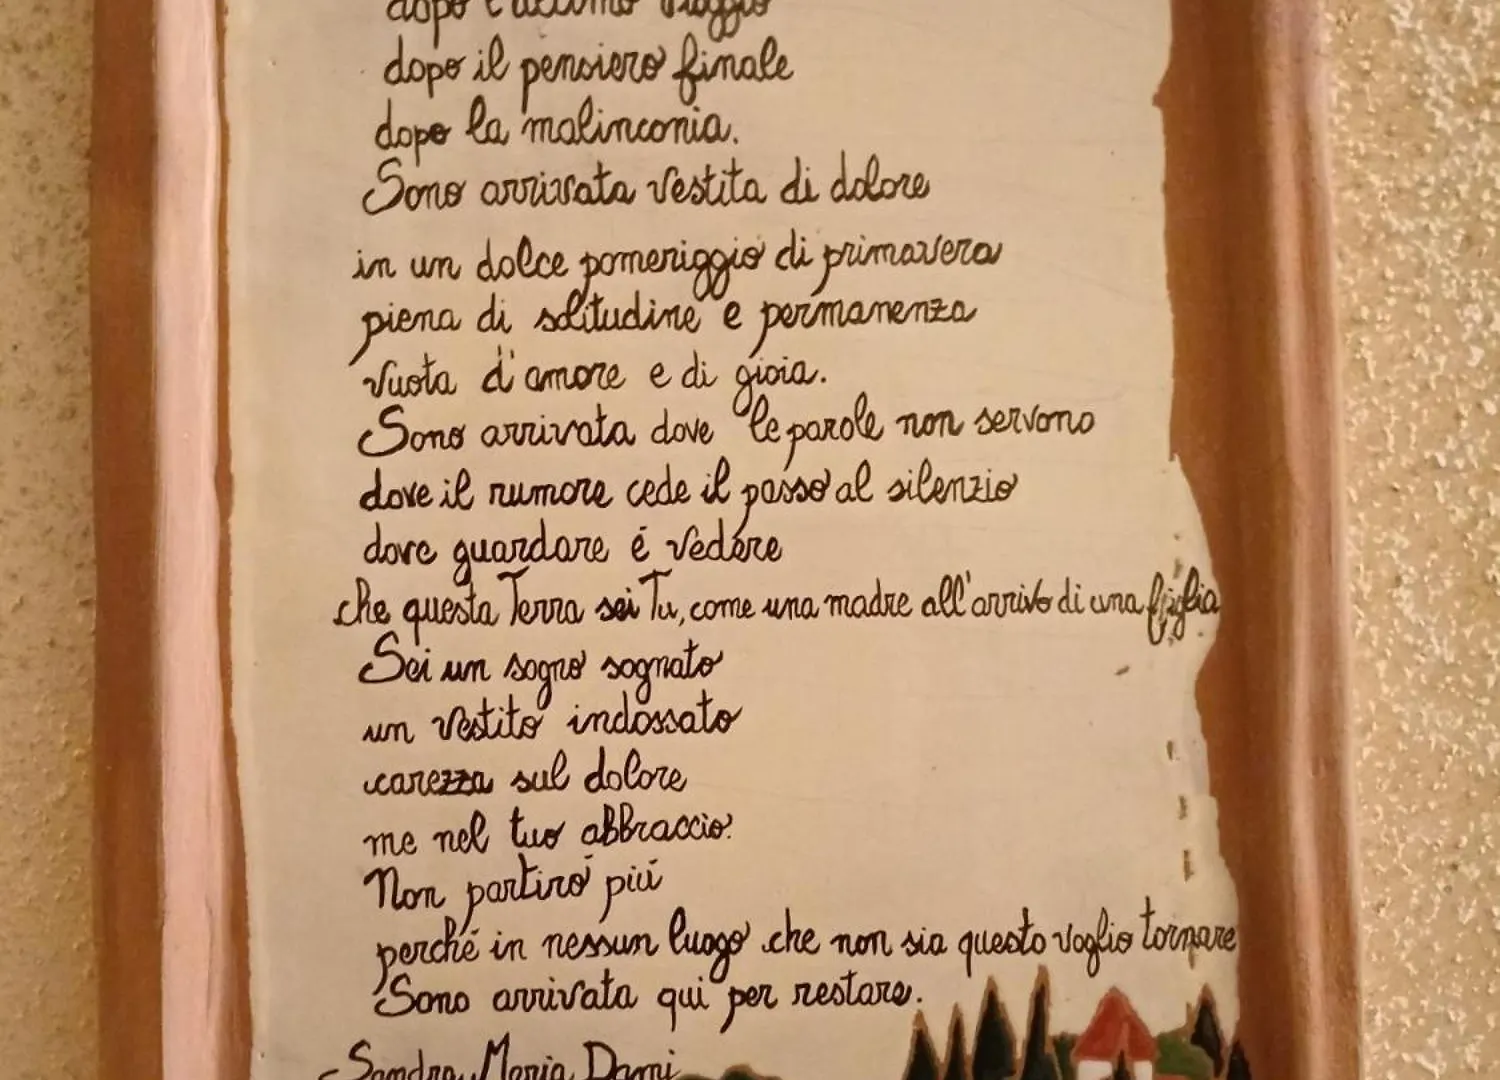 dopo l'ultimo viaggio
dopo il pensiero finale
dopo la malinconia.
Sono arrivata vestita di dolore
in un dolce pomeriggio di primavera
piena di solitudine e permanenza
vuota d'amore e di gioia.
Sono arrivata dove le parole non servono
dove il rumore cede il passo al silenzio
dove guardare é vedere
che questa Terra sei Tu, come una madre all'arrivo di una figlia
Sei un sogno sognato
un vestito indossato
carezza sul dolore
me nel tuo abbraccio.
Non partiró piú
perché in nessun luogo che non sia questo voglio tornare
Sono arrivata qui per restare.
Sandra Maria Dami